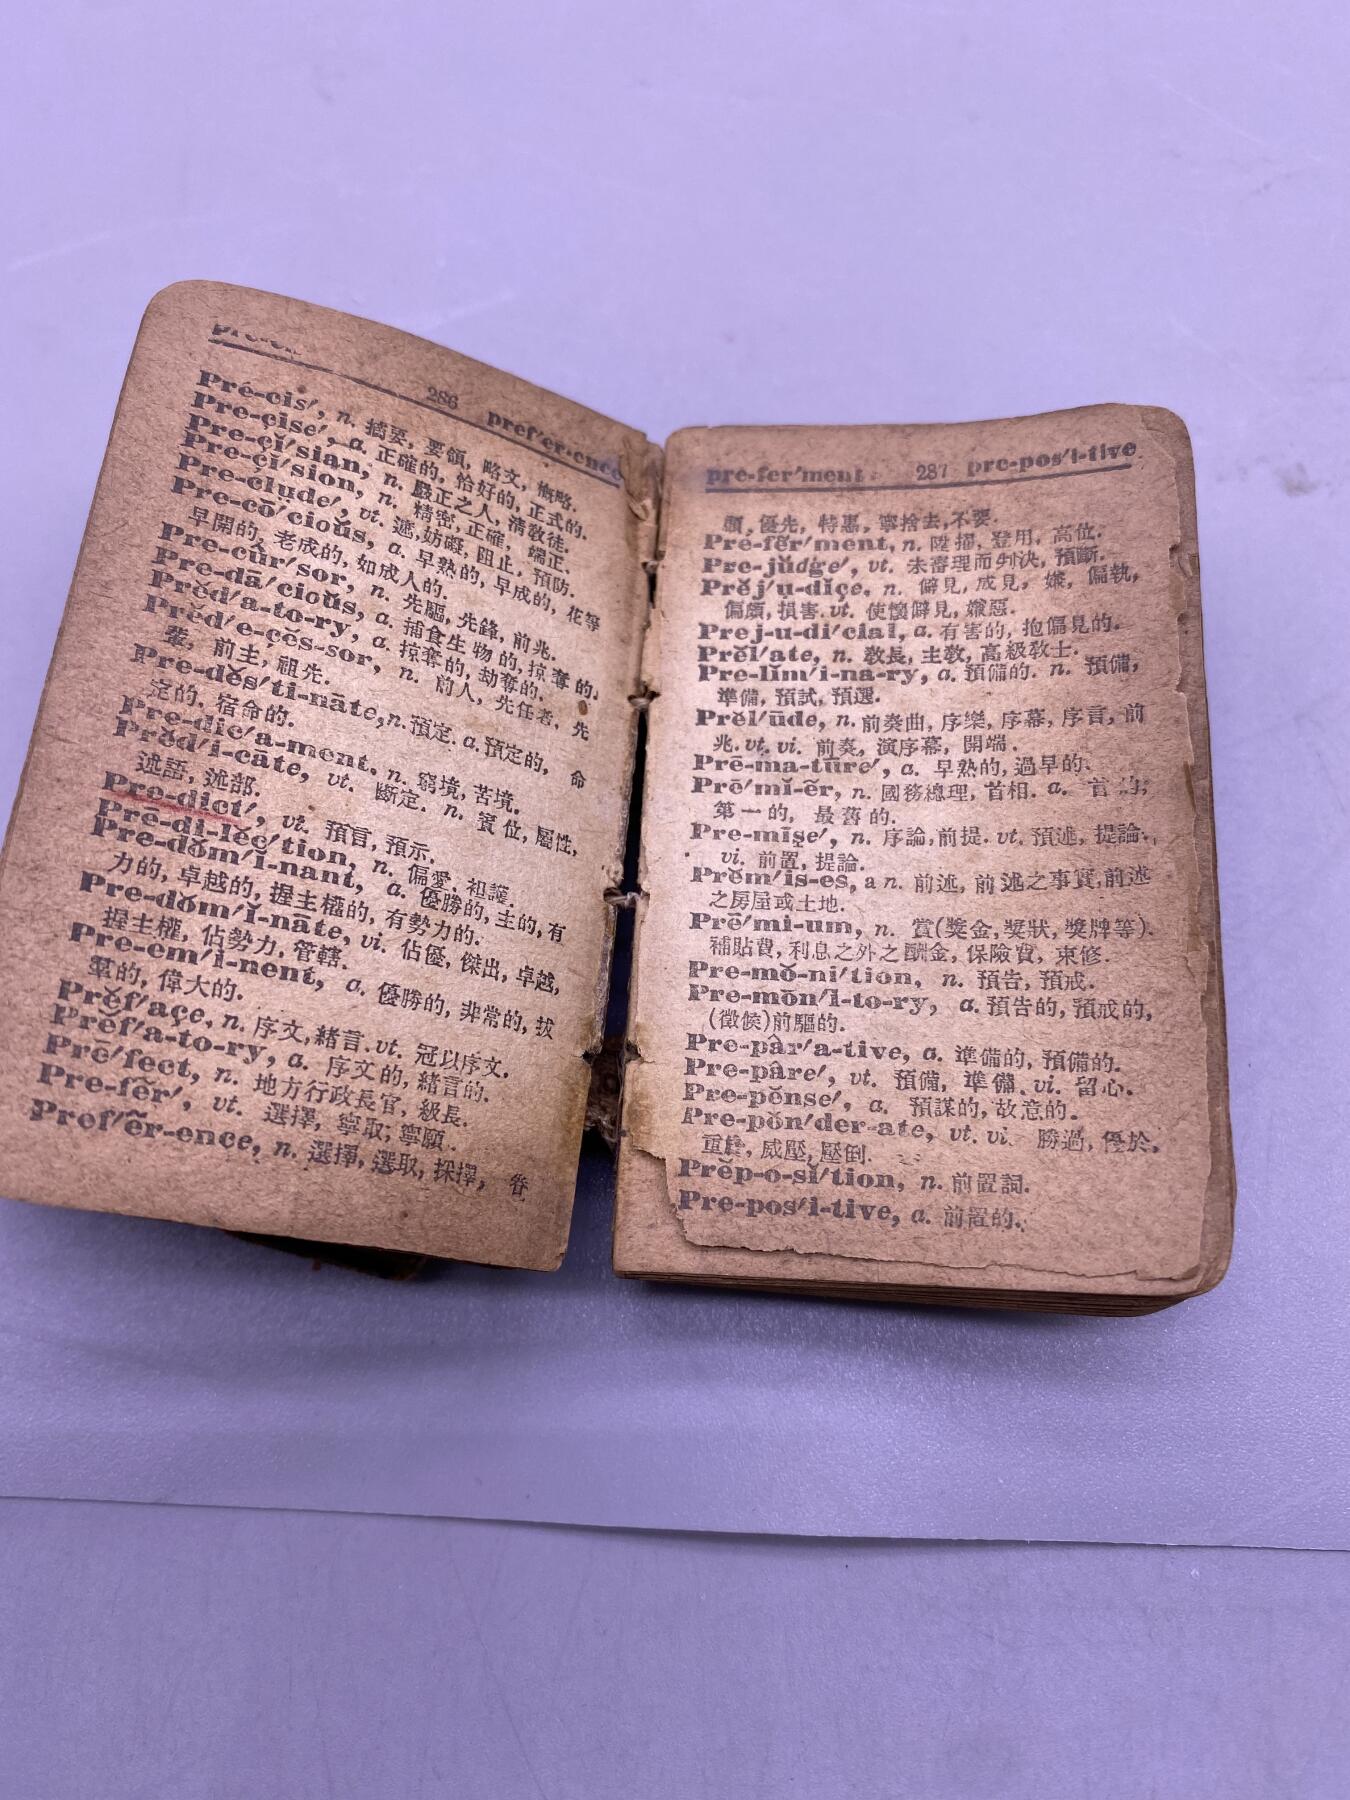 286 pref′er-ence
Pré-cis′, n. 摘要, 要領, 略文, 概略.
Pre-çise′, a. 正確的, 恰好的, 正式的.
Pre-çĭ′sian, n. 嚴正之人, 清敎徒.
Pre-çĭ′sion, n. 精密, 正確, 端正.
Pre-clude′, vt. 遮, 妨礙, 阻止, 預防.
Pre-cō′cioŭs, a. 早熟的, 早成的, 花等
早開的, 老成的, 如成人的.
Pre-cûr′sor, n. 先驅, 先鋒, 前兆.
Pre-dā′cioŭs, a. 捕食生物的, 掠奪的.
Prĕd′a-to-ry, a. 掠奪的, 劫奪的.
Prĕd′e-çĕs-sor, n. 前人, 先任者, 先
輩, 前主, 祖先.
Pre-dĕs′ti-nāte, n. 預定. a. 預定的, 命
定的, 宿命的.
Pre-dic′a-ment, n. 窮境, 苦境.
Prĕd′i-cāte, vt. 斷定. n. 賓位, 屬性,
述語, 述部.
Pre-dict′, vt. 預言, 預示.
Prē-di-lĕc′tion, n. 偏愛, 袒護.
Pre-dŏm′i-nant, a. 優勝的, 主的, 有
力的, 卓越的, 握主權的, 有勢力的.
Pre-dŏm′i-nāte, vi. 佔優, 傑出, 卓越,
握主權, 佔勢力, 管轄.
Pre-em′i-nent, a. 優勝的, 非常的, 拔
羣的, 偉大的.
Prĕf′açe, n. 序文, 緒言. vt. 冠以序文.
Prĕf′a-to-ry, a. 序文的, 緒言的.
Prē′fect, n. 地方行政長官, 級長.
Pre-fẽr′, vt. 選擇, 寧取, 寧願.
Pref′ẽr-ence, n. 選擇, 選取, 採擇, 眷
pre-fer′ment 287 pre-pos′i-tive
顧, 優先, 特惠, 寧捨去, 不要.
Pre-fẽr′ment, n. 陞擢, 登用, 高位.
Pre-jŭdge′, vt. 未審理而判決, 預斷.
Prĕj′u-dĭçe, n. 僻見, 成見, 嫌, 偏執,
偏頗, 損害. vt. 使懷僻見, 嫌惡.
Prej-u-di′cial, a. 有害的, 抱偏見的.
Prĕl′ate, n. 敎長, 主敎, 高級敎士.
Pre-lĭm′i-na-ry, a. 預備的. n. 預備,
準備, 預試, 預選.
Prĕl′ūde, n. 前奏曲, 序樂, 序幕, 序言, 前
兆. vt. vi. 前奏, 演序幕, 開端.
Prē-ma-tūre′, a. 早熟的, 過早的.
Prē′mĭ-ẽr, n. 國務總理, 首相. a. 首的,
第一的, 最舊的.
Pre-mīşe′, n. 序論, 前提. vt. 預述, 提論.
vi. 前置, 提論.
Prĕm′is-es, n. 前述, 前述之事實, 前述
之房屋或土地.
Prē′mi-um, n. 賞(獎金, 獎狀, 獎牌等).
補貼費, 利息之外之酬金, 保險費, 束修.
Pre-mŏ-ni′tion, n. 預告, 預戒.
Pre-mŏn′i-to-ry, a. 預告的, 預戒的,
(徵候)前驅的.
Pre-pâr′a-tive, a. 準備的, 預備的.
Pre-pâre′, vt. 預備, 準備. vi. 留心.
Pre-pĕnse′, a. 預謀的, 故意的.
Pre-pŏn′der-ate, vt. vi. 勝過, 優於,
重量, 威壓, 壓倒.
Prĕp-o-sĭ′tion, n. 前置詞.
Pre-pos′i-tive, a. 前置的.